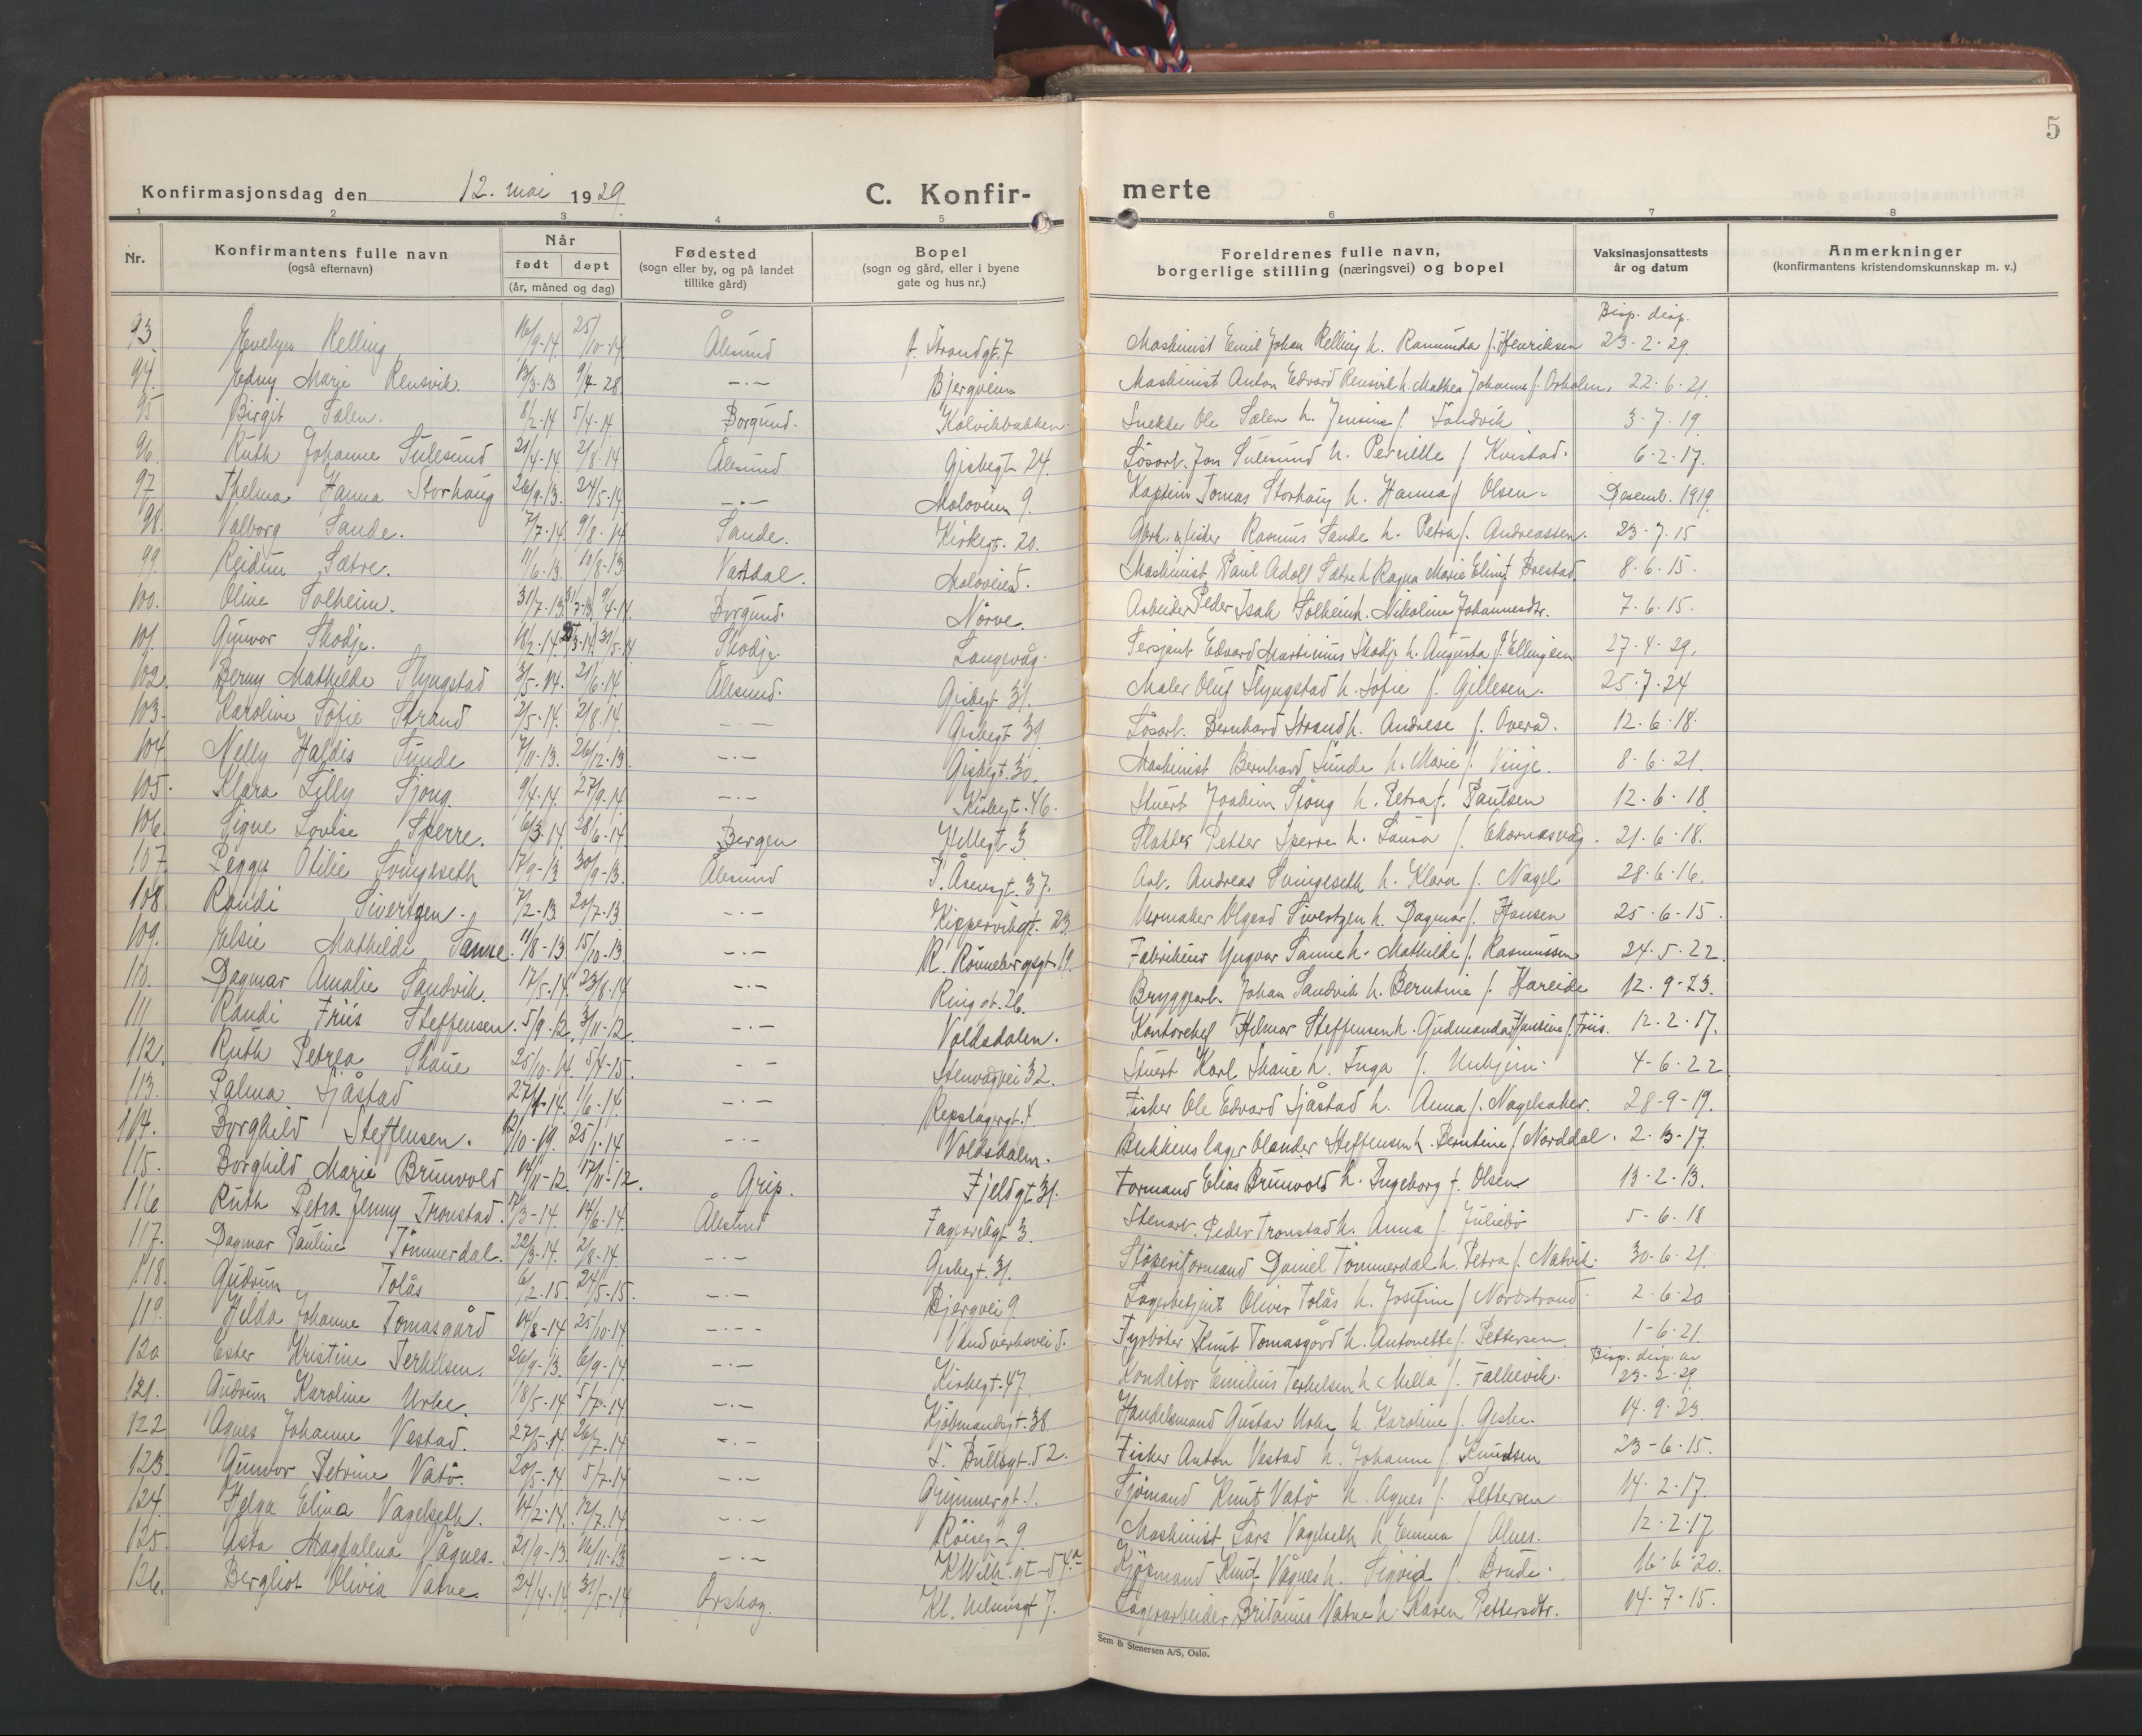 5
Konfirmasjonsdag den 12. mai 1929. C. Konfir- merte
1 2 3 4 5 6 7 8
Nr. Konfirmantens fulle navn (også efternavn) Når født døpt (år, måned og dag) Fødested (sogn eller by, og på landet tillike gård) Bopel (sogn og gård, eller i byene gate og hus nr.) Foreldrenes fulle navn, borgerlige stilling (næringsvei) og bopel Vaksinasjonsattests år og datum Anmerkninger (konfirmantens kristendomskunnskap m. v.)
Bisp. disp.
93 Evelyn Relling 16/9-14 25/10-14 Ålesund Strandgt. 7 Maskinist Emil Johan Relling h. Ramunda f. Henriksen 23-2-29.
94. Edny Marie Rensvik. 13/3-13 9/4-28 -.- Bjergheim Maskinist Anton Edvard Rensvik h. Mathea Johanne f. Osholm. 22.6.21.
95 Birgit Sælen. 8/2-14 5/4-14 Borgund. Kolvikbakken Snekker Ole Sælen h. Jensine f. Sandvik 3-7.19.
96. Ruth Johanne Sulesund 21/4-14. 2/8-14 Ålesund Gisbegt. 24. Lösarb. Jon Sulesund h. Pernille f. Kvistad. 6.2.17.
97. Thelma Hanna Storhaug 26/9-13. 24/5-14. -.- Moloveien 9. Kaptein Tomas Storhaug h. Hanna f. Olsen. Desemb. 1919.
98. Valborg Sande. 7/7-14. 9/8-14 Sande. Kirkegt. 20. Gårb. & fisker Rasmus Sande h. Petra f. Andreassen. 23.7.15
99. Reidun Sætre. 11/6-13. 10/8-13 Vartdal. Moloveien. Maskinist Paul Adolf Sætre h. Ragna Marie Elina f. Brestad 8.6.15.
100. Oline Solheim. 31/7-13 9/4-14. Borgund. Nörve. Arbeider Peder Isak Solheim h. Nikoline Johannesdtr. 7.6.15.
101. Gunvor Skodje. 18/2-14. 31/5-14 Skodje. Langevåg. Sersjant Edvard Martinus Skodje h. Augusta f. Ellingsen 27.4-29.
102. Berny Mathilde Slyngstad 3/5-14. 21/6-14. Ålesund. Gisbegt. 31. Maler Oluf Slyngstad h. Sofie f. Gillesen. 25.7.24
103. Karoline Sofie Strand 2/5-14. 2/8-14. -.- Gisbegt. 39. Lösarb. Bernhard Strand h. Andrese f. Overå. 12.6.18.
104. Nelly Haldis Sunde 7/11-13. 26/12-13. -.- Gisbegt. 30. Maskinist Bernhard Sunde h. Marie f. Vinje. 8.6.21.
105. Klara Lilly Sjong. 9/4-14. 27/9-14 -.- Kirkegt. 46. Stuert Joakim Sjong h. Petra f. Paulsen 12.6.18
106. Signe Lovise Sperre. 6/3-14. 28/6-14 Bergen Hellegt. 3 Slakter Petter Sperre h. Laura f. Ekornesvåg. 21.6.18.
107. Peggy Otilie Svingeseth 17/9-13 30/9-13. Ålesund I. Åsensgt. 37. Arb. Andreas Svingeseth h. Klara f. Nagel 28.6.16.
108 Randi Sivertsen. 7/2-13 20/7-13 -.- Kippervikgt. 23. Urmaker Olgard Sivertzen h. Dagmar f. Hansen 25.6-15.
109. Elsie Mathilde Sanne. 11/8-13 15/10-13. -.- R. Rönnebergsgt. 19. Fabrikeier Yngvar Sanne h. Mathilde f. Rasmussen 24.5.22.
110. Dagmar Amalie Sandvik. 17/5-14. 23/8-14. -.- Ringgt. 26. Bryggearb. Johan Sandvik h. Berntine f. Hareide 12.9-23.
111 Randi Friis Steffensen. 5/9-12. 3/11-12. -.- Voldsdalen. Kontorchef Hilmar Steffensen h. Gudmanda Hansine f. Friis. 12.2.17.
112. Ruth Petrea Skaue 25/10-14. 5/4-15. - - Stenvågvei 32. Stuert Karl Skaue h. Inga f. Unhjem. 4-6.22
113. Palma Sjåstad 27/4-14. 1/6-14. -.- Repslagergt. 4. Fisker Ole Edvard Sjåstad h. Anna f. Nagelsaker. 28-9-19.
114. Borghild Steffensen. 12/10-19. 25/1-14. -.- Voldsdalen. Blikkenslager Olander Steffensen h. Berntine f. Norddal. 2.13-17.
115. Borghild Marie Brunvold 14/11-12. 17/11-12. Grip. Fjeldgt. 31. Formand Elias Brunvold h. Ingeborg f. Olsen 13-2.13.
116 Ruth Petra Jenny Tronstad. 17/3-14. 14/6-14. Ålesund Fagerligt. 3. Stenarb. Peder Tronstad h. Anna f. Juliebö 5-6.18
117. Dagmar Pauline Tömmerdal. 22/3-14. 2/8-14. -.- Gisbegt. 31. Stöperiformand Daniel Tömmerdal h. Petra f. Natvik. 30.6.21.
118. Gudrun Tolås 6/2-15. 24/5-15. -.- Bjergvei 9. Lagerbetjent Oliver Tolås h. Josefine f. Nordstrand 2.6.20
119. Hilda Johanne Tomasgård 14/8-14 25/10-14. -.- Vandverksvei 5. Fyrböter Knut Tomasgård h. Antonette f. Pettersen. 1-6.21.
Bisp. disp. av
120 Ester Kristine Terkelsen. 26/9-13. 6/9-14. -.- Kirkegt. 47. Konditor Emilius Terkelsen h. Milla f. Falkevik. 23-2.29.
121. Gudrun Karoline Urke. 18/5-14 5/7-14 -.- Kjöbmandsgt. 38. Handelsmand Gustav Urke h. Karoline f. Geske. 14.9.23.
122 Agnes Johanne Vestad. 27/5-14. 26/7-14. -.- S. Bullsgt. 52. Fisker Anton Vestad h. Johanne f. Knudsen 23-6.15.
123. Gunvor Petrine Vatö. 20/5-14. 5/7-14 -.- Grimmergt. 1. Sjömand Knut Vatö h. Agnes f. Pettersen. 14.2.17.
124. Helga Elina Vagelseth. 14/2-14. 12/7-14. -.- Röiseg. 9. Maskinist Lars Vagelseth h. Emma f. Alnes. 12.2.17
125. Asta Magdalena Vågnes. 21/9-13. 16/11-13 -.- K. Wilh. gt. 54a Kjöpmand Knut Vågnes h. Sigrid f. Brude. 16.6.20.
126. Bergliot Olivia Vatne. 24/4-14. 31/5-14 Örskog. Kl. Nilsensgt. 7. Lagerarbeider Britanus Vatne h. Karen Pettersdtr. 14.7.15.
Sem & Stenersen A/S, Oslo.